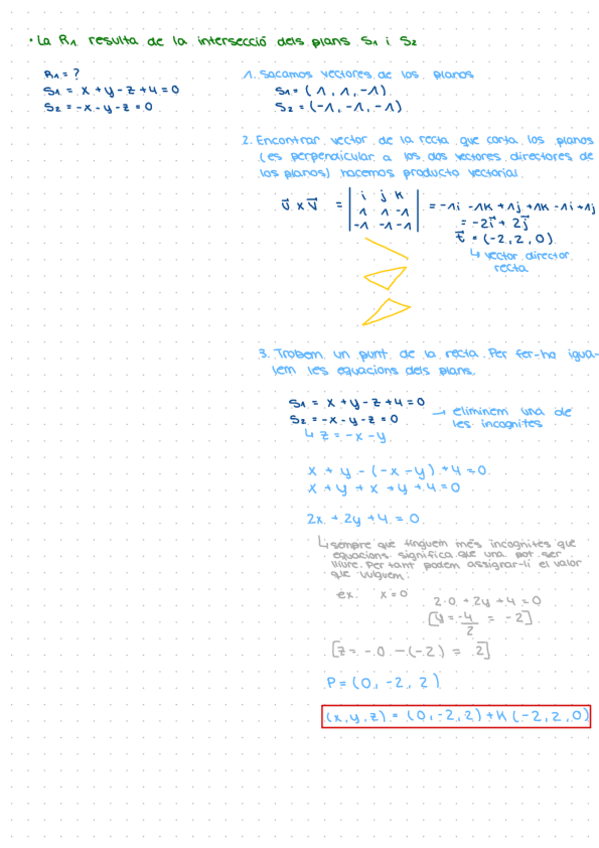 · La R1 resulta de la intersecció dels plans S1 i S2
R1 = ?
S1 = x + y - z + 4 = 0
S2 = -x - y - z = 0
1. Sacamos vectores de los planos
S1 = (1, 1, -1)
S2 = (-1, -1, -1)
2. Encontrar vector de la recta que corta los planos
(es perpendicular a los dos vectores directores de
los planos) hacemos producto vectorial
u⃗ x v⃗ = | i j k |
| 1 1 -1 | = -1i -1k +1j +1k -1i +1j
| -1 -1 -1 | = -2i⃗ + 2j⃗
t⃗ = (-2, 2, 0)
↳ vector director
recta
3. Trobem un punt de la recta. Per fer-ho igua-
lem les equacions dels plans.
S1 = x + y - z + 4 = 0
S2 = -x - y - z = 0 → eliminem una de
les incognites
↳ z = -x - y
x + y - (-x - y) + 4 = 0
x + y + x + y + 4 = 0
2x + 2y + 4 = 0
↳ sempre que tinguem més incognites que
equacions significa que una pot ser
lliure. Per tant podem assignar-li el valor
que vulguem:
ex. x = 0 2·0 + 2y + 4 = 0
[y = -4/2 = -2]
[z = -0 - (-2) = 2]
P = (0, -2, 2)
(x, y, z) = (0, -2, 2) + K (-2, 2, 0)